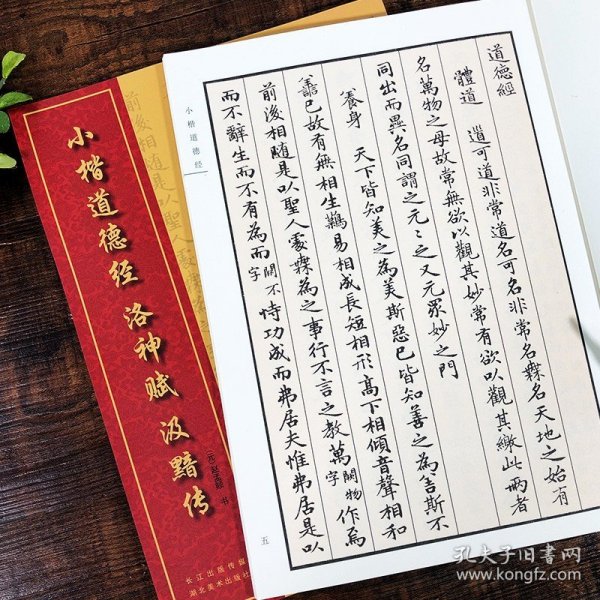 道德經
體道 道可道非常道名可名非常名無名天地之始有
名萬物之母故常無欲以觀其妙常有欲以觀其繳此兩者
同出而異名同謂之元〻之又元眾妙之門
養身 天下皆知美之為美斯惡已皆知善之為善斯不
善已故有無相生難易相成長短相形高下相傾音聲相和
前後相隨是以聖人處無為之事行不言之教萬闕字物作焉
而不辭生而不有為而闕字不恃功成而弗居夫惟弗居是以
小楷道德经
五
小楷道德经 洛神赋 汲黯传
(元)赵孟頫 书
长江出版传媒
湖北美术出版社
前後相隨是以聖人處
孔夫子旧书网
www.kongfz.com